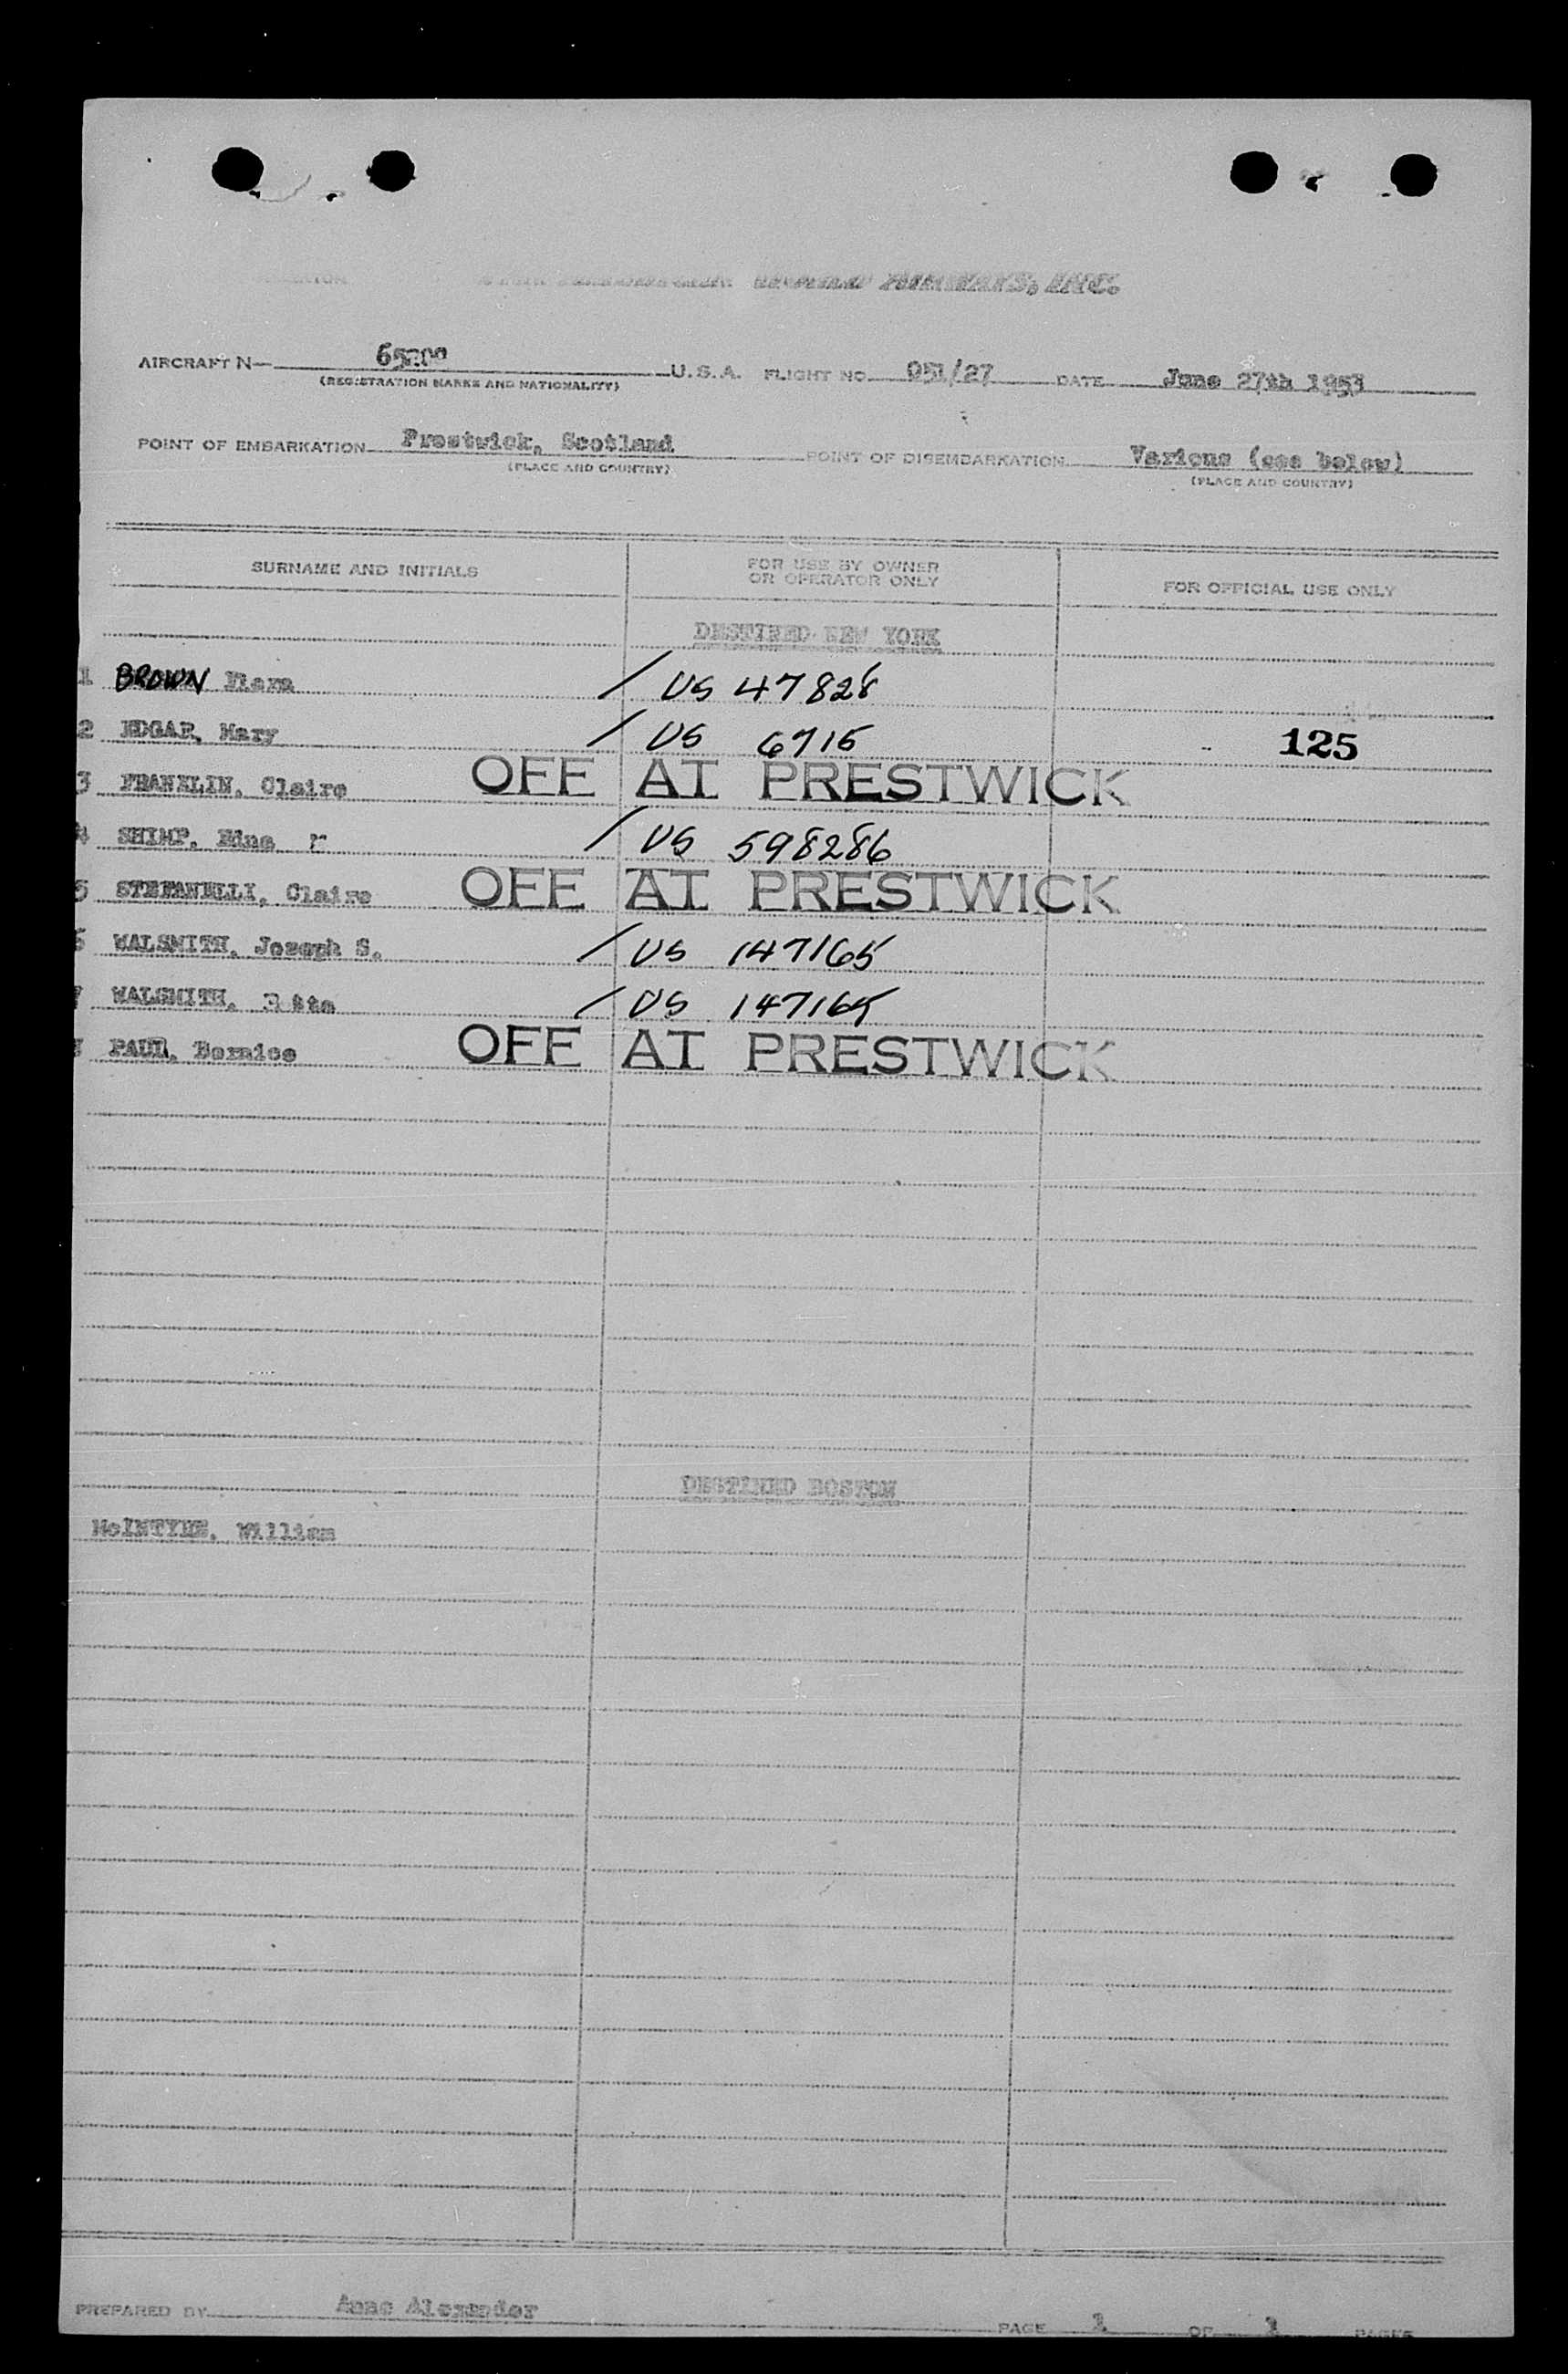 WORLD AIRWAYS, INC.
AIRCRAFT N— U.S.A. FLIGHT NO. 051/27 DATE June 27th 1953
(REGISTRATION MARKS AND NATIONALITY)
POINT OF EMBARKATION Prestwick, Scotland POINT OF DISEMBARKATION Various (see below)
(PLACE AND COUNTRY) (PLACE AND COUNTRY)
SURNAME AND INITIALS FOR USE BY OWNER OR OPERATOR ONLY FOR OFFICIAL USE ONLY
DESTINED NEW YORK
1 BROWN / US 47828
2 EDGAR, Mary / US 6715 125
3 FRANKLIN, Claire OFF AT PRESTWICK
4 SHIMP, Edna / US 598286
5 STEFANELLI, Claire OFF AT PRESTWICK
6 WALSMITH, Joseph S. / US 147165
7 WALSMITH, / US 147165
PAUL, Bernice OFF AT PRESTWICK
DESTINED BOSTON
McINTYRE, William
PREPARED BY Anne Alexander
PAGE 1 OF 1 PAGES